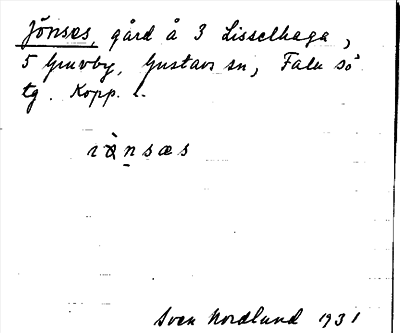 Jönses, gård å 3 Lisselhaga,
5 Gruvby, Gustavs sn, Falu sö
tg. Kopp. l.
Sven Nordlund 1931